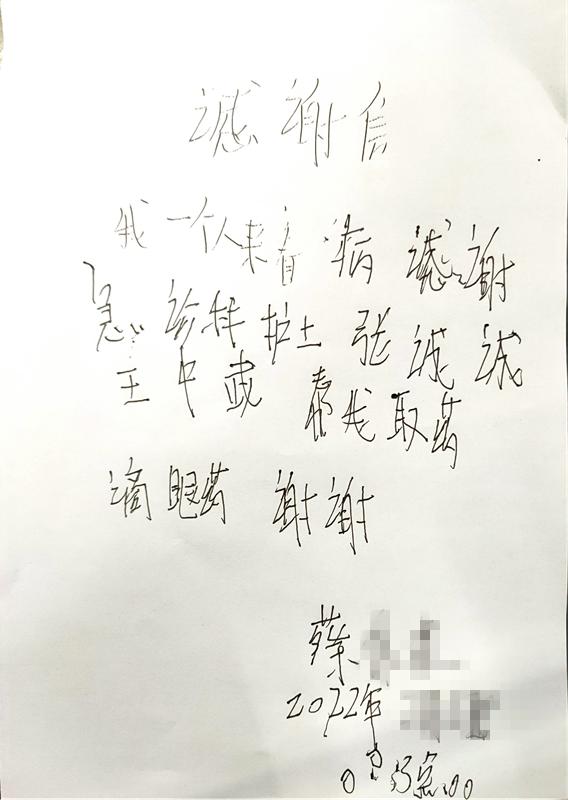 感谢信
我一个人来看病 感谢
急诊科护士 张诚诚
王中
帮我取药
滴眼药 谢谢
蔡
2022年